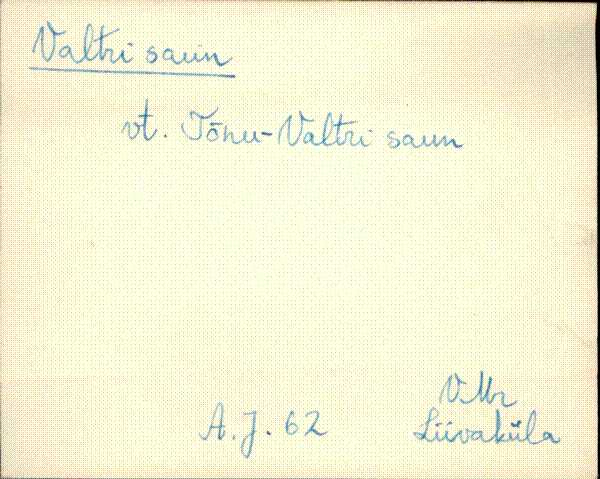 Valtri saun
vt. Tõnu-Valtri saun
VMr
A. J. 62
Liivaküla